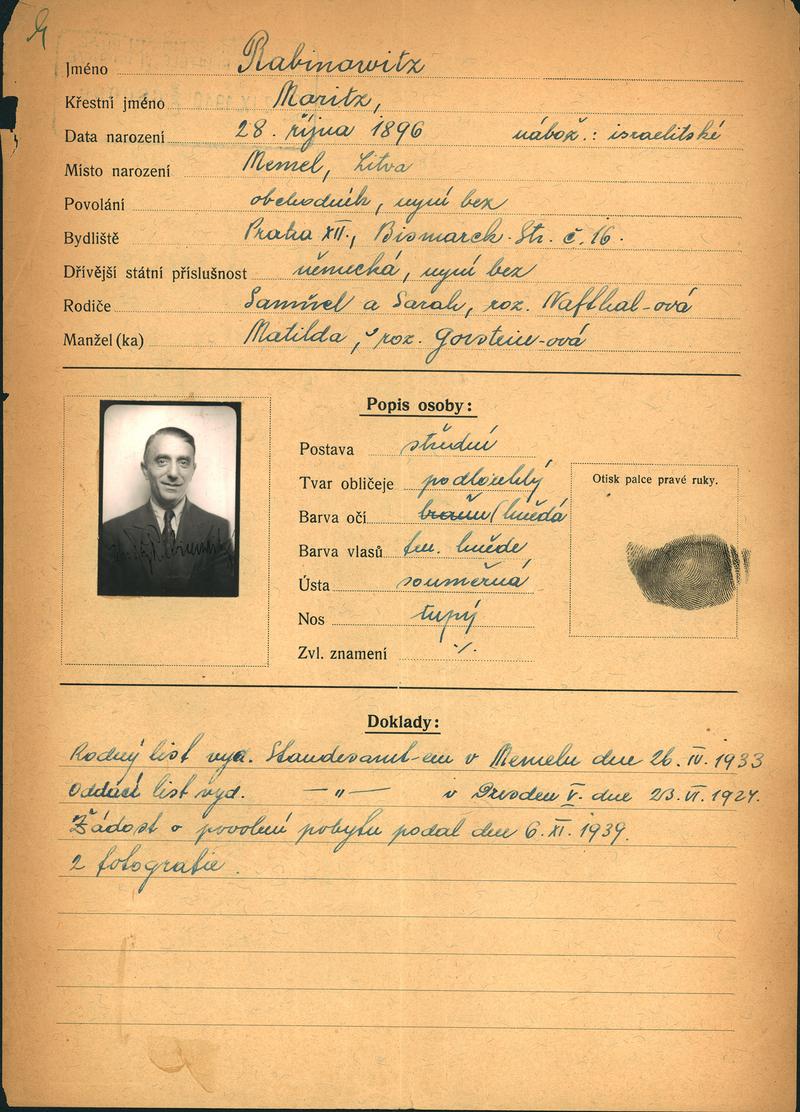 Jméno Rabinowitz
Křestní jméno Moritz,
Data narození 28. října 1896 nábož.: israelitské
Místo narození Memel, Litva
Povolání obchodník, nyní bez
Bydliště Praha XII., Bismarck-Str. č. 16.
Dřívější státní příslušnost německá, nyní bez
Rodiče Samuel a Sarah, roz. Nafthal-ová
Manžel(ka) Matilda, roz. Gorstein-ová
Popis osoby:
Postava střední
Tvar obličeje podlouhlý
Otisk palce pravé ruky.
Barva očí braun/hnědá
Barva vlasů hnědé
Ústa souměrná
Nos tupý
Zvl. znamení ./.
Doklady:
Rodný list vyd. Standesamt-em v Memelu dne 26. IV. 1933
Oddací list vyd. —"— v Dresden V. dne 23. VI. 1927.
Žádost o povolení pobytu podal dne 6. XI. 1939.
2 fotografie.